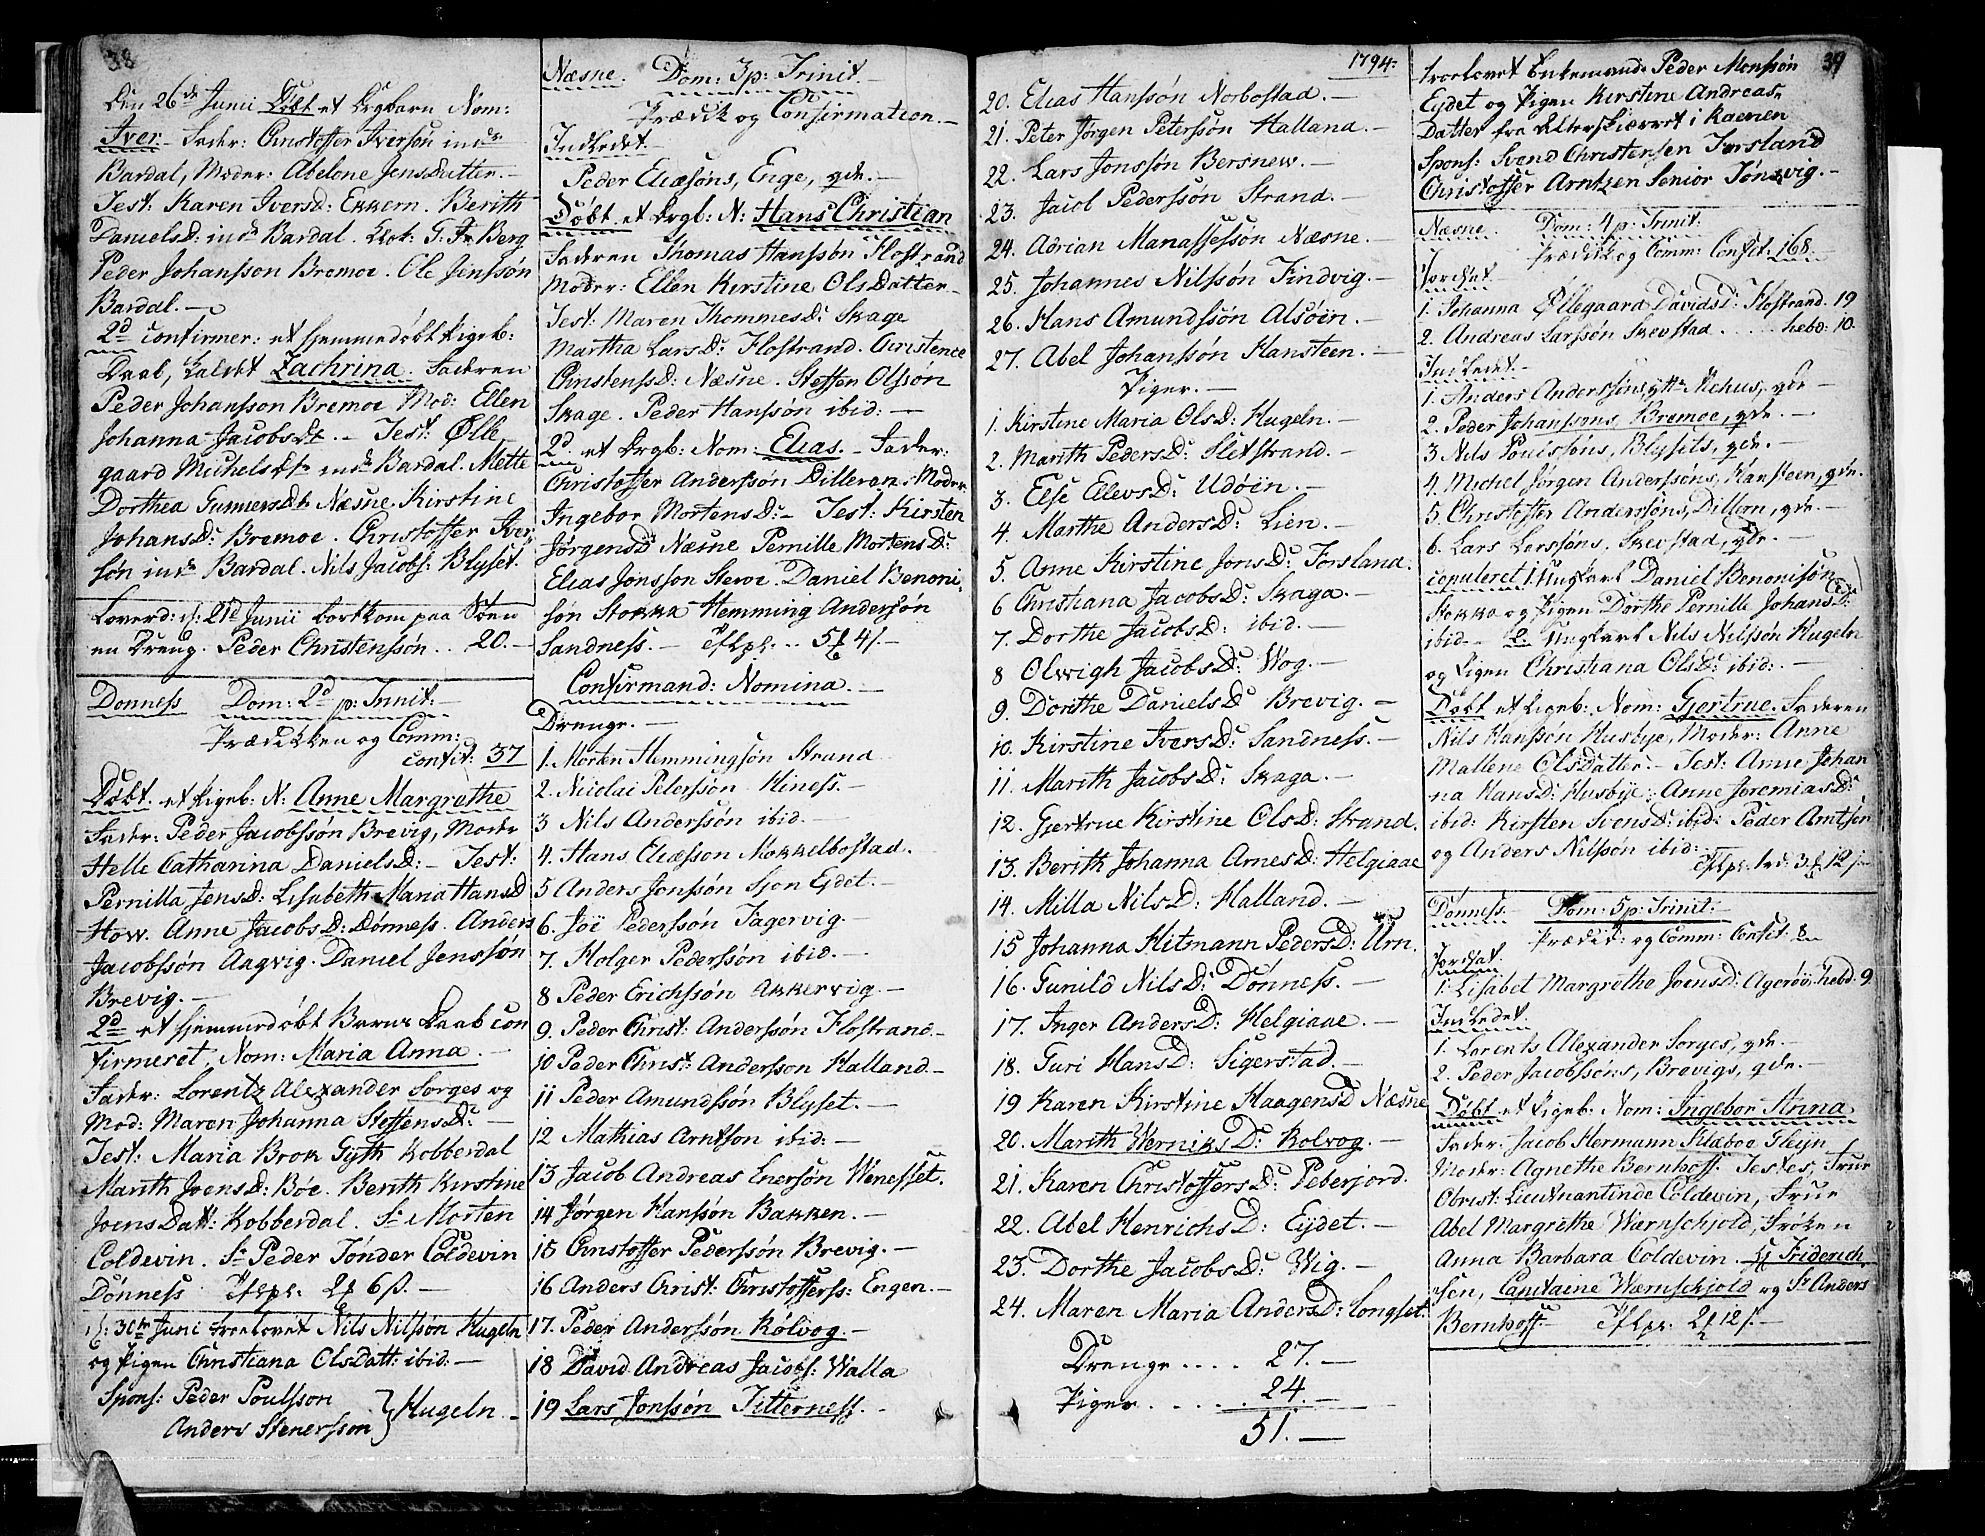 38
Den 26de Junii Døbt et Drgbarn Nom:
Iver. Fader: Christoffer Iversøn indr
Bardal, Moder: Abelone JensDatter. -
Test: Karen IversD: Ekkern. Berith
DanielsD: indr Bardal. Klok: G: Fr Berg
Peder Johansson Bremoe. Ole Jenssøn
Bardal. -
2d confirmer: et hjemmedøbt Pigeb:
Daab, kaldet Zachrina. Faderen
Peder Johansson Bremoe Mod: Ellen
Johanna JacobsDt. - Test: Ølle
gaard MichelsDtr indr Bardal. Mette
Dorthea GunnersDtr Næsne. Kirstine
JohansD: Bremoe. Christoffer Iver
søn indr Bardal. Nils Jacobs: Blyset.
Løverd: 21d Junii bortkom paa Søen
en Dreng. Peder Christenssøn.. 20. -
Donness Dom: 2d p: Trinit: -
Prædikken og Comm:
confit: 37
Døbt et Pigeb: N: Anne Margrethe
Fader: Peder Jacobssøn Brevig, Moder
Helle Catharina DanielsD: - Test:
Pernilla JensD: Lisabeth Maria HansD
How. Anne JacobsD: Dønness. Anders
Jacobssøn Aagvig. Daniel Jenssøn
Brevig. -
2d et hjemmedøbt Barns Daab con
firmeret, Nom: Maria Anna. -
Fader: Lorentz Alexander Sorges og
Mod: Maren Johanna SteffensD: -
Test: Maria Brok Gyth Kobberdal
Marith JoensD: Bøe. Berith Kirstine
JoensDatt: Kobberdal. Sr Morten
Coldevin. Sr Peder Tønder Coldevin
Dønness 2 6ß. -
30te Junii troelovet Nils Nilssøn Hugeln
og Pigen Christiana OlsDatt: ibid: -
Spons: Peder Poulsson
Anders Stenersson } Hugeln. -
Næsne. Dom: 3 p: Trinit -
Prædik og Confirmation. -
Indledet. -
Peder Eliæsøns, Enge, qde. -
Døbt et Drgb: N: Hans Christian
Faderen Thomas Hanssøn Flostrand
Moder: Ellen Kirstine OlsDatter -
Test: Maren ThommesD: Skage
Martha LarsD: Flostrand. Christence
ChristenssD: Næsne. Steffen Olssøn
Skage. Peder Hanssøn ibid: -
2d. et Drgb: Nom: Elias. - Fader:
Christoffer Anderssøn Dilleren. Moder
Ingebor MortensD: - Test: Kirsten
JørgensD: Næsne Pernille MortensD:
Elias Jonsson Stevoe. Daniel Benoni
søn Stokka Hemming Andersøn
Sandness. - 5 4ß. -
Confirmand: Nomina. -
Drenge. -
1. Morten Hemmingsøn Strand
2. Nicolai Peterssøn Hiness. -
3 Nils Anderssøn ibid. -
4. Hans Eliæsson Mokkelbostad.
5 Anders Jonssøn Sjon Eydet. -
6. Joë Pederssøn Fagervig. -
7. Holger Pederssøn ibid. -
8 Peder Erichssøn Akkervig -
9. Peder Christ: Anderssøn Flostrand -
10 Peder Christ: Andersson Halland. -
11 Peder Amundssøn Blyset. -
12 Mathias Arntson ibid: -
13 Jacob Andreas Enersøn Wenesset.
14 Jørgen Hanssøn Bakken. -
15 Christoffer Pederssøn Brevig. -
16 Anders Christ: Christofferss: Engen. -
17. Peder Anderssøn Kolvog. -
18 David Andreas Jacobs: Walla
19 Lars Jonssøn Titterness. -
1794.
20. Elias Hanssøn Norbostad. -
21. Peter Jørgen Peterssøn Halland. -
22. Lars Jonssøn Bersnew. -
23. Jacob Pederssøn Strand. -
24. Adrian Manassessøn Næsne. -
25. Johannes Nilssøn Findvig. -
26. Hans Amundssøn Alsøen. -
27. Abel Johanssøn Hansteen. -
Piger. -
1. Kirstine Maria OlsD: Hugeln. -
2. Marith PedersD: Sletstrand. -
3. Else EllevsD: Udøen. -
4. Marthe AndersD: Lien. -
5. Anne Kirstine JonsD: Forsland.
6 Christiana JacobsD: Skaga. -
7. Dorthe JacobsD: ibid. -
8 Olwigh JacobsD: Wog. -
9. Dorithe DanielsD: Brevig. -
10. Kirstine IversD: Sandness. -
11. Marith JacobsD: Skaga. -
12. Gjertrue Kirstine OlsD: Strand.
13. Berith Johanna ArnesD: Helgiaae
14. Milla NilsD: Halland. -
15 Johanna Hitmann PedersD: Urn.
16. Gunild NilsD: Dønness. -
17. Inger AndersD: Helgiaae. -
18. Guri HansD: Sigerstad. -
19 Karen Kirstine HaagensD Næsne
20. Marith WerniksD: Kolvog. -
21. Karen ChristoffersD: Peberjord.
22. Abel HenrichsD: Eydet. -
23. Dorthe JacobsD: Wig. -
24. Maren Maria AndersD: Longset.
Drenge.... 27. -
Piger...... 24. -
51. -
39
troelovet Enkemand Peder Monssøn
Eydet og Pigen Kirstine Andreas
Datter fra Alterskiæret i Ranen
Spons: Svend Christensen Forsland
Christoffer Arntzen Senior Tønsvig. -
Næsne. Dom: 4 p: Trinit:
Prædik og Comm: Confit: 168.
Jordfæt
1. Johanna Øllegaard DavidsD: Flostrand. 19
2. Andreas Larssøn Skevstad.... hebd: 10.
Indledet. -
1. Anders Anderssøns, Nehus, qde -
2. Peder Johanssøns, Bremoe, qde. -
3 Nils Poulssøns, Blysets, qde. -
4. Michel Jørgen Anderssøns, Hansteen, qde.
5. Christoffer Anderssøns, Dillern, qde. -
6. Lars Larssøns, Skevstad, qde. -
copuleret 1. Ungkarl Daniel Benonisøn
Stokka og Pigen Dorthe Pernille JohansD:
ibid - 2. Ungkarl Nils Nilssøn Hugeln
og Pigen Christiana OlsD: ibid: -
Døbt et Pigeb: Nom: Gjertrue. Faderen
Nils Hanssøn Husbye, Moder: Anne
Mallene OlsDatter. - Test: Anne Johan
na HansD: Husbye. Anne JeremiasD:
ibid: Kirsten SvensD: ibid: Peder Arntsen
og Anders Nilssøn ibid: -
3 12ß
Dønness. Dom: 5 p: Trinit: -
Prædik: og Comm: Confit: 8
Jordfæt.
1. Lisabet Margrethe JoensD: Agerøe: hebd: 9
Indledet.
1. Lorents Alexander Sorges, qde. -
2. Peder Jacobssøns, Brevigs, qde. -
Døbt et Pigeb: Nom: Ingebor Anna
Fader: Jacob Hermann Klæboe Glein
Moder: Agnethe Bernhoff. Testes, Frue
Obrist: Lieutnantinde Coldevin, Frue
Abel Margrethe Wærnschjold, Frøken
Anna Barbara Coldevin. Hr Friderich
sen, Capitaine Wærnschjold og Sr Anders
Bernhoff. - 2 12ß. -